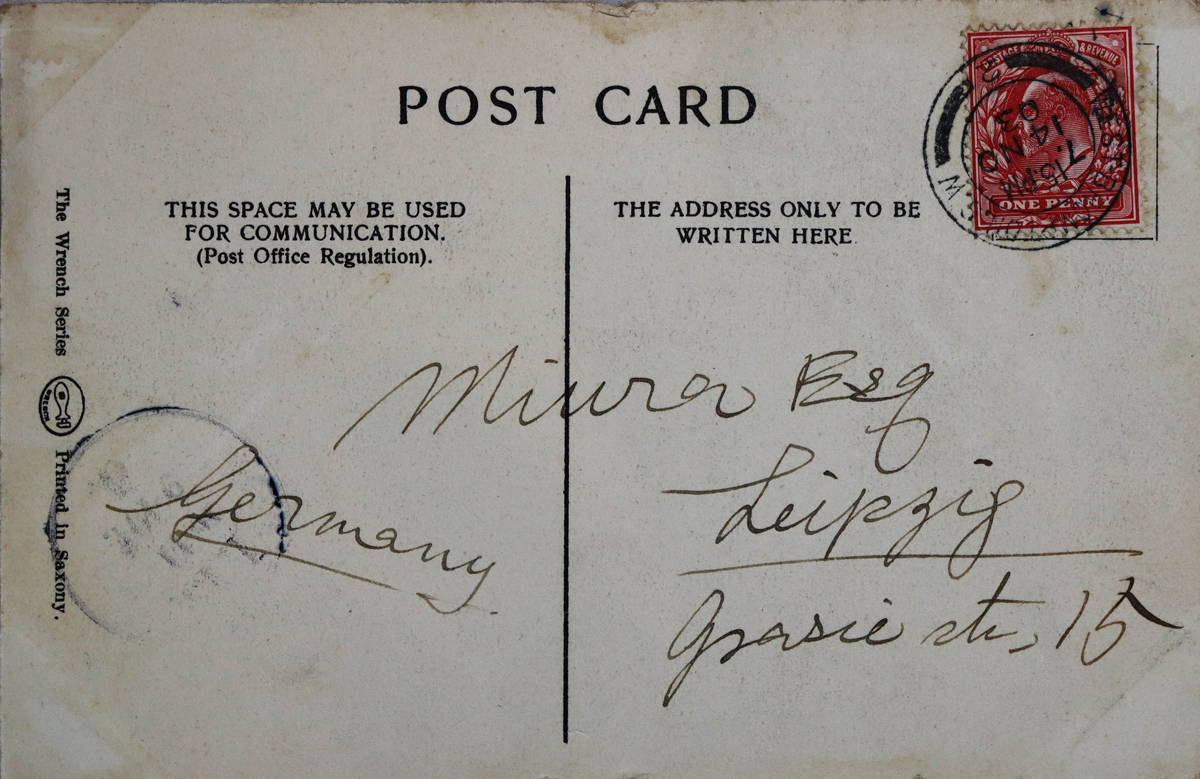 POST CARD
THIS SPACE MAY BE USED
FOR COMMUNICATION.
(Post Office Regulation).
THE ADDRESS ONLY TO BE
WRITTEN HERE
POSTAGE & REVENUE
ONE PENNY
7.15 PM
14 NO
03
The Wrench Series
Printed in Saxony.
Miura Esq
Leipzig
Grasie str, 15
Germany